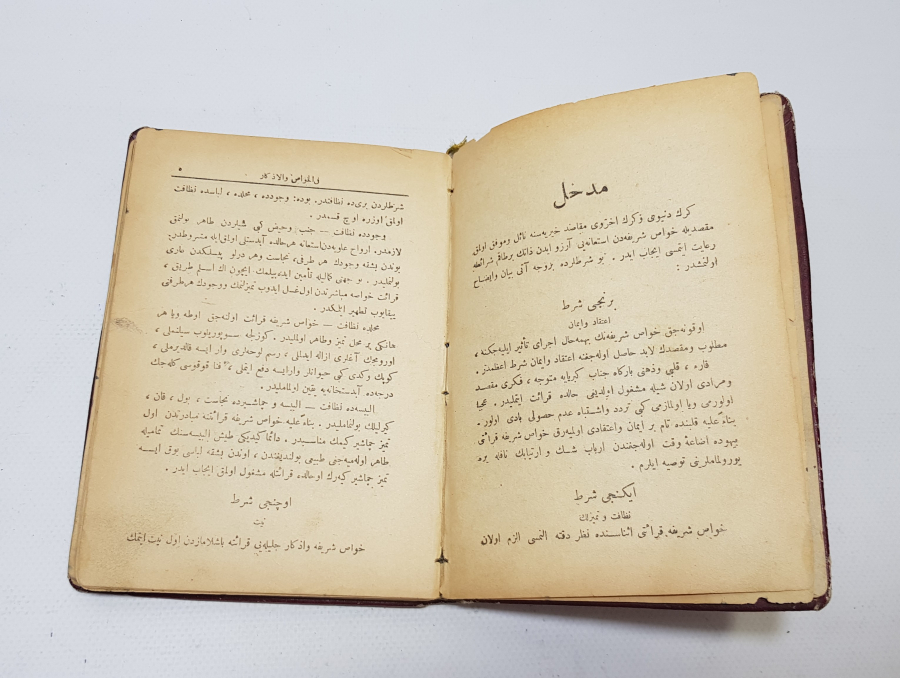 مدخل
كرك دنيوى وكرك اخروى مقاصد خيريه‌سنه نائل وموفق اولمق
مقصديله خواص شريفه‌دن استعانه‌يى آرزو ايدن ذاتك برطاقم شرائطه
رعايت ايتمسى ايجاب ايدر. بو شرطلرده بروجه آتى بيان وايضاح
اولنمشدر:
برنجى شرط
اعتقاد وايمان
اوقونه‌جق خواص شريفه‌نك بهمه‌حال اجراى تأثير ايليه‌جكنه،
مطلوب ومقصدك لابد حاصل اوله‌جغنه اعتقاد وايمان شرط اعظمدر.
قاره، قلبى وذهنى بارگاه جناب كبريايه متوجه، فكرى مقصد
ومرادى اولان شيله مشغول اولديغى حالده قرائت ايتمليدر. عجبا
اولورمى ويا اولمازمى كبى تردد واشتباه عدم حصولى بادى اولور.
بناءً عليه قلبنده تام بر ايمان واعتقادى اوليه‌رق خواص شريفه قرائتى
بيهوده اضاعهٔ وقت اوله‌جغندن ارباب شك و ارتيابك نافله يره
يورولماملرينى توصيه ايلرم.
ايكنجى شرط
نظافت و تميزلك
خواص شريفه قرائتى اثناسنده نظر دقته آلنمسى الزم اولان
فى الخواص والاذكار
٥
شرطلردن برى‌ده نظافتدر. بوده: وجودده، محلده، لباسده نظافت
اولمق اوزره اوچ قسمدر.
وجودده نظافت — جنب وحيض كبى شيلردن طاهر بولنمق
لازمدر. ارواح علويه‌دن استعانه هرحالده آبدستلى اولمق‌ايله مشروطدر.
بوندن بشقه وجودك هر طرفى، نجاست وهر درلو پيسلكدن عارى
بولنمليدر. بو جهتى كماليله تأمين ايده‌بيلمك ايچون اك اسلم طريق،
قرائت خواصه مباشرتدن اول غسل ايدوب تميزلنمك ووجودك هرطرفنى
ييقايوب تطهير ايتمكدر.
محلده نظافت — خواص شريفه قرائت اولنه‌جق اوطه ويا هر
هانكى بر محل تميز وطاهر اولمليدر. كوزلجه سوپورلوب سيلنملى،
اورومجك آغلرى ازاله ايدلملى، رسم لوحه‌لرى وار ايسه قالديرملى،
كوپك وكدى كبى حيوانلر وارايسه دفع ايتملى، فنا قوقوسى كله‌جك
درجه‌ده آبدستخانه‌يه يقين اولماملىدر.
البسه‌ده نظافت — البسه و چماشيرده نجاست، بول، قان،
كيرليلك بولنماملىدر. بناءً عليه خواص شريفه قرائتنه مبادرتدن اول
تميز چماشير كيمك مناسبدر. دائما كيديكى طيش البسه‌سنك تماميله
طاهر اوله‌ميه‌جغى طبيعى بولنديغندن، اوندن بشقه لباسى يوق ايسه
تميز چماشير كيه‌رك اوحالده قرائتله مشغول اولمق ايجاب ايدر.
اوچنجى شرط
نيت
خواص شريفه واذكار جليله‌يى قرائته باشلامازدن اول نيت ايتمك